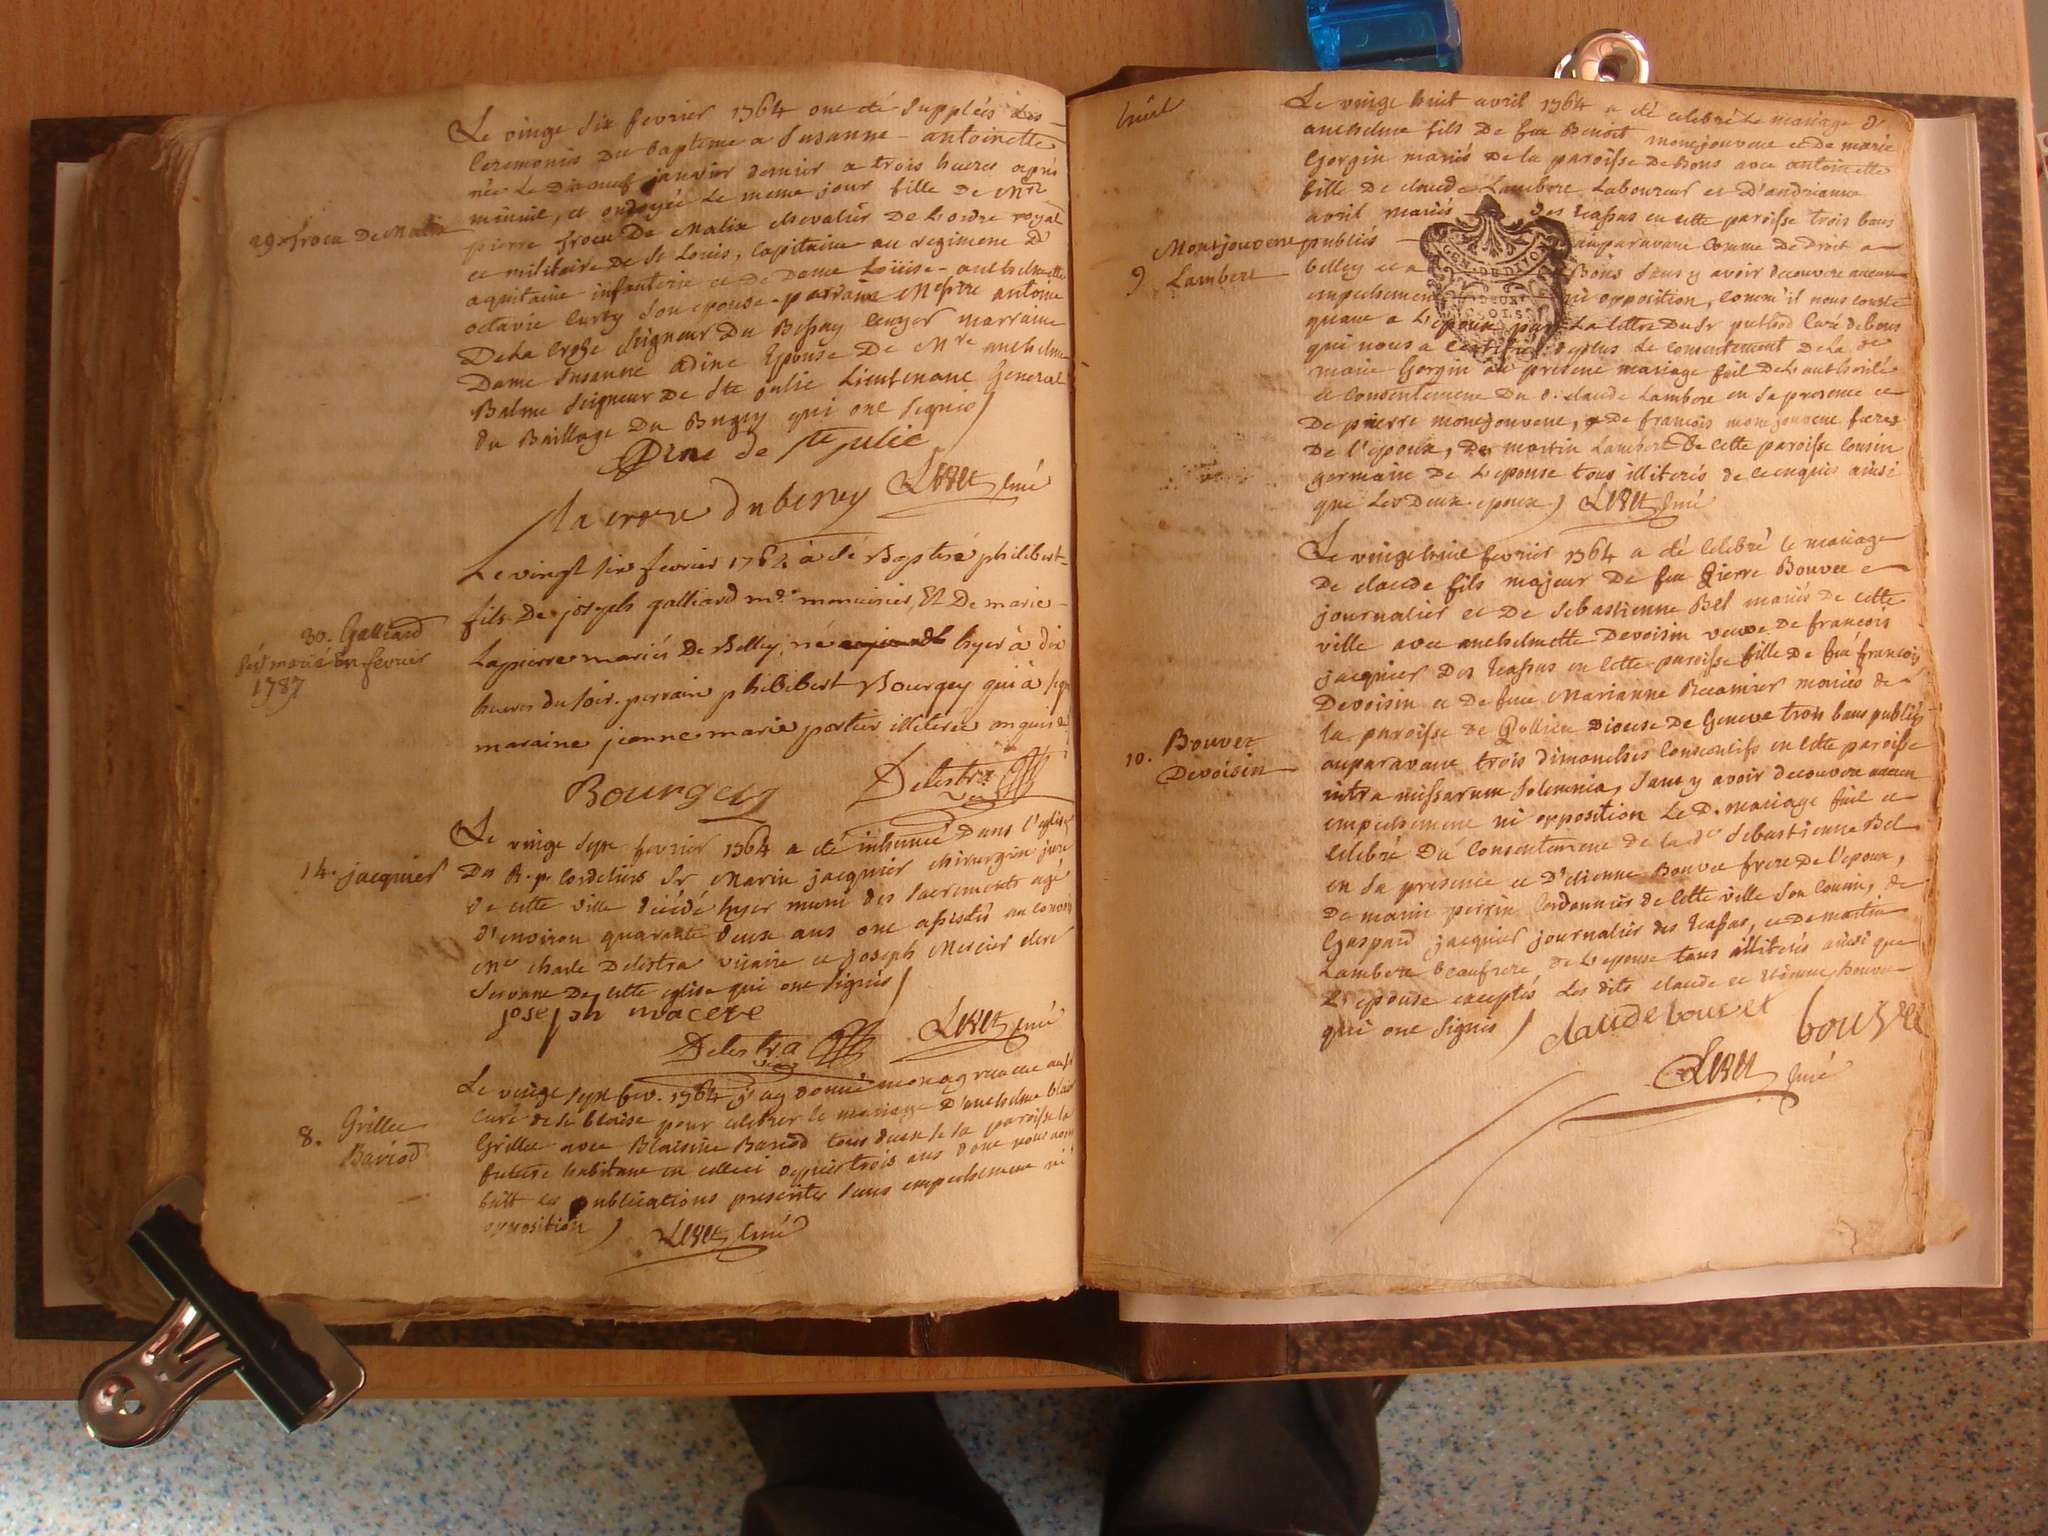 Le vingt six fevrier 1764 ont été Suppléés les
Ceremonies du Bapteme a Susanne antoinette
née Le dixneuf janvier dernier a trois heures après
minuit, et ondoyée Le meme jour fille de Mre
29. frocu De Malix
pierre frocu De Malix chevalier De L'ordre royal
et militaire De St Louis, Capitaine au regiment D'
aquitaine infanterie et De Dame Loüise anthelmette
octavie Curty Son epouse. parrain Messire antoine
De La Croze Seigneur Du Bessey Ecuyer marraine
Dame Susanne Dine Epouse De Mre anthelme
Balme Seigneur De Ste Julie Lieutenant General
du Baillage Du Bugey qui ont Signés
Dine de Ste julie
la croze du besey Levet Curé
Le vingt six fevrier 1764 à été Baptisé philibert
fils De joseph galliard me menuisier, Et De marie
30. Galliard
Lapierre mariés De Belley, né hyer à dix
marié en fevrier
1787
heures du Soir. parrain philibert Bourgey qui à signé
maraine jeanne marie portier illiterée enquise
Bourgey Delestra Vic
Le vingt Sept fevrier 1764 a été inhumé Dans l'eglise
14. jacquier
Des R. p. Cordeliers Sr Marin jacquier chirurgien juré
de cette ville décédé hyer muni des Sacrements agé
d'environ quarante deux ans ont assistés au convoy
Mre charle Delestra vicaire et joseph Mercier clerc
Servant De cette eglise qui ont Signés
joseph macere
Delestra Vic Levet Curé
Le vingt Sept fev. 1764 j'ay donné mon agrement au Sr
Curé de St blaise pour celebrer le mariage D'anthelme
8. Grillet
Bariod
Grillet avec Blaisine Bariod tous deux de Sa paroisse la
future habitant en celleci depuis trois ans dont nous avons
fait les publications presentes Sans empechement ni
opposition Levet Curé
huit
Le vingt huit avril 1764 a été celebré Le mariage d'
anthelme fils De feu Benoit montjouvent et de marie
Gorgin mariés de la paroisse De Bons avec antoinette
fille De claude Lambert Laboureur et D'andrianne
avril mariés des ecassas en cette paroisse trois bans
Montjouvent
9 Lambert
publiés auparavant Comme De Droit a
belley et a Bons Sans y avoir decouvert aucun
empechement ni opposition, Comm'il nous conste
quant a L'epoux par La lettre du Sr Curé de bons
qui nous a certifié deplus Le consentement de La de
marie Gorgin au present mariage fait de L'authorité
et consentement Du d. claude Lambert en Sa presence et
De pierre montjouvent, De francois montjouvent freres
De l'epoux, De martin Lambert De cette paroisse cousin
germain De L'epouse tous illiterés de ce enquis ainsi
que Les Deux epoux Levet Curé
Le vingt huit fevrier 1764 a été Celebré le mariage
De claude fils majeur De feu Pierre Bouvet
journalier et De Sebastienne Bel mariés de cette
ville avec anthelmette Devoisin veuve De francois
jacquier Des ecassas en cette paroisse fille De feu francois
Devoisin et De feue Marianne Recamier mariés de
la paroisse de Pollieu Diocese De Geneve trois bans publiés
10. Bouvet
Devoisin
auparavant trois dimanches Consecutifs en cette paroisse
intra missarum Solemnia, Sans y avoir decouvert aucun
empechement ni opposition Le D. mariage fait et
Celebré Du Consentement de la de Sebastienne Bel
en Sa presence et D'etienne Bouvet frere De l'epoux,
De marin perrin Cordonnier de Cette ville Son Cousin, de
Gaspard jacquier journalier des ecassas, et De martin
Lambert beaufrere De L'epouse tous illiterés ainsi que
L'epouse exceptés Les dits claude et etienne Bouvet
qui ont Signés claude bouvet bouvet
Levet Curé